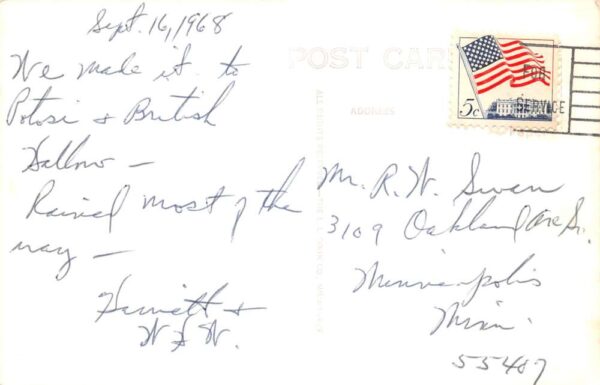 Sept. 16, 1968
We made it to
Potosi & British
Hallow —
Rained most of the
way —
Harriett &
W.F.W.
POST CARD
ADDRESS
5c
FOR
SERVICE
Mr. R. W. Swan
3109 Oakland Ave So.
Minneapolis
Minn.
55407